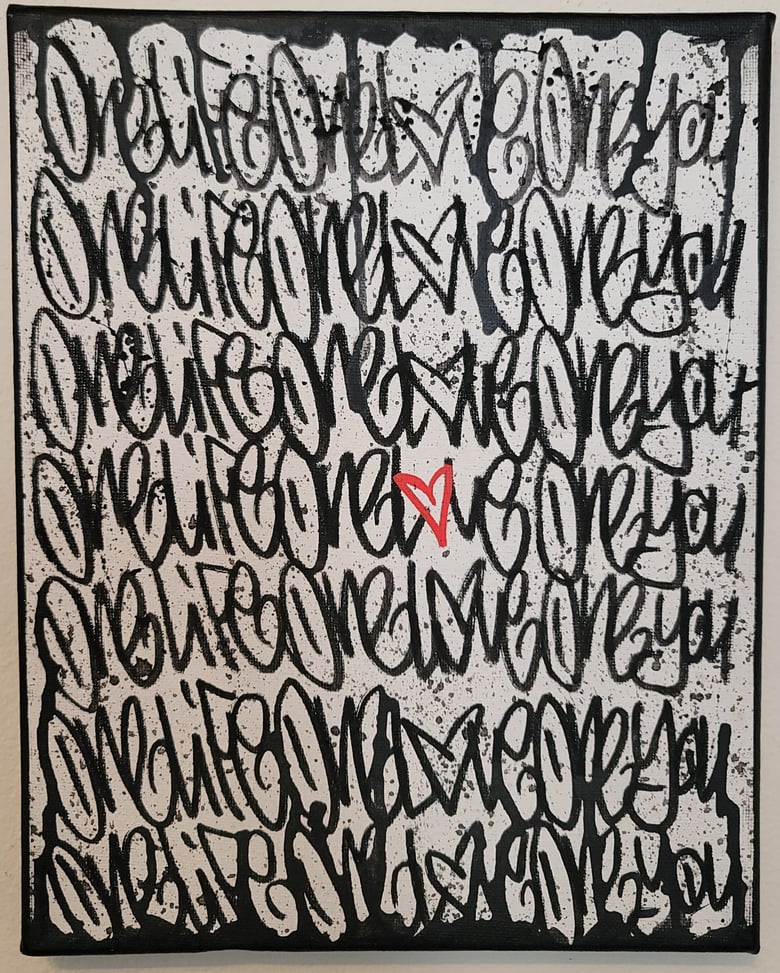 One life One l♥ve One you
One life One l♥ve One you
One life One l♥ve One you
One life One l♥ve One you
One life One l♥ve One you
One life One l♥ve One you
One life One l♥ve One you